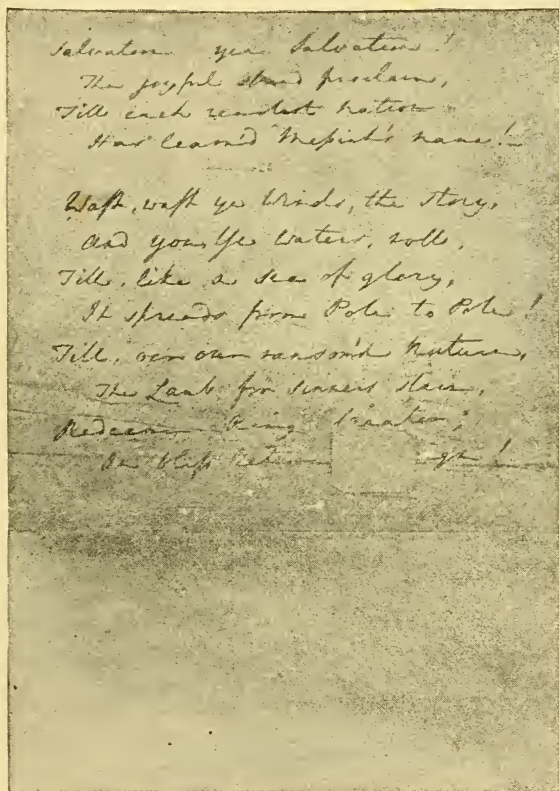 Salvation yea Salvation!
The joyful sound proclaim,
Till each remotest nation
Has learned Messiah's name!
Waft, waft ye Winds, the story,
And you, Ye Waters, roll,
Till, like a Sea of glory,
It spreads from Pole to Pole!
Till, o'er our ransom'd Nature,
The Lamb for Sinners slain,
Redeemer King Creator,
In bliss return